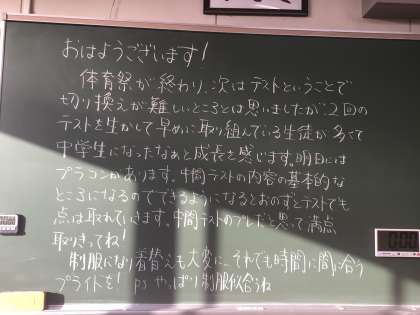 おはようございます!
体育祭が終わり、次はテストということで
切り換えが難しいところとは思いましたが、2回の
テストを生かして早めに取り組んでいる生徒が多くて
中学生になったなぁと成長を感じます。明日には
プラコンがあります。中間テストの内容の基本的な
ところになるのでできるようになるとおのずとテストでも
点は取れていきます。中間テストのプレだと思って満点
取りきってね!
制服になり着替えも大変に、それでも時間に間に合う
ブライトを! PS やっぱり制服似合うね